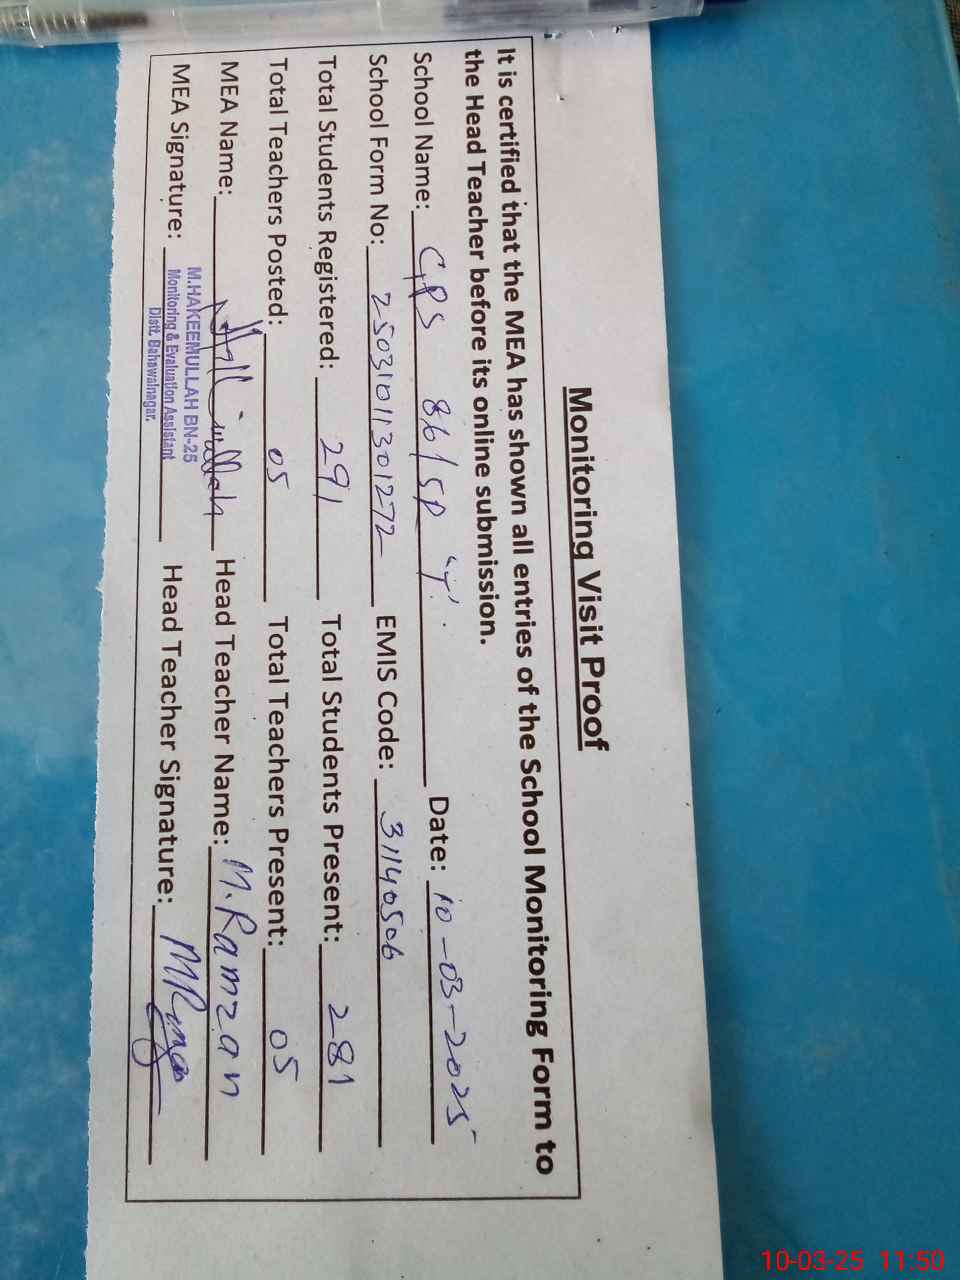 Monitoring Visit Proof
It is certified that the MEA has shown all entries of the School Monitoring Form to
the Head Teacher before its online submission.
School Name: GPS 86/5R "Y". Date: 10-03-2025
School Form No: 25031011301272 EMIS Code: 31140506
Total Students Registered: 291 Total Students Present: 281
Total Teachers Posted: 05 Total Teachers Present: 05
MEA Name: Head Teacher Name: M. Ramzan
M.HAKEEMULLAH BN-25
MEA Signature: Monitoring & Evaluation Assistant Head Teacher Signature:
Distt. Bahawalnagar.
10-03-25 11:50